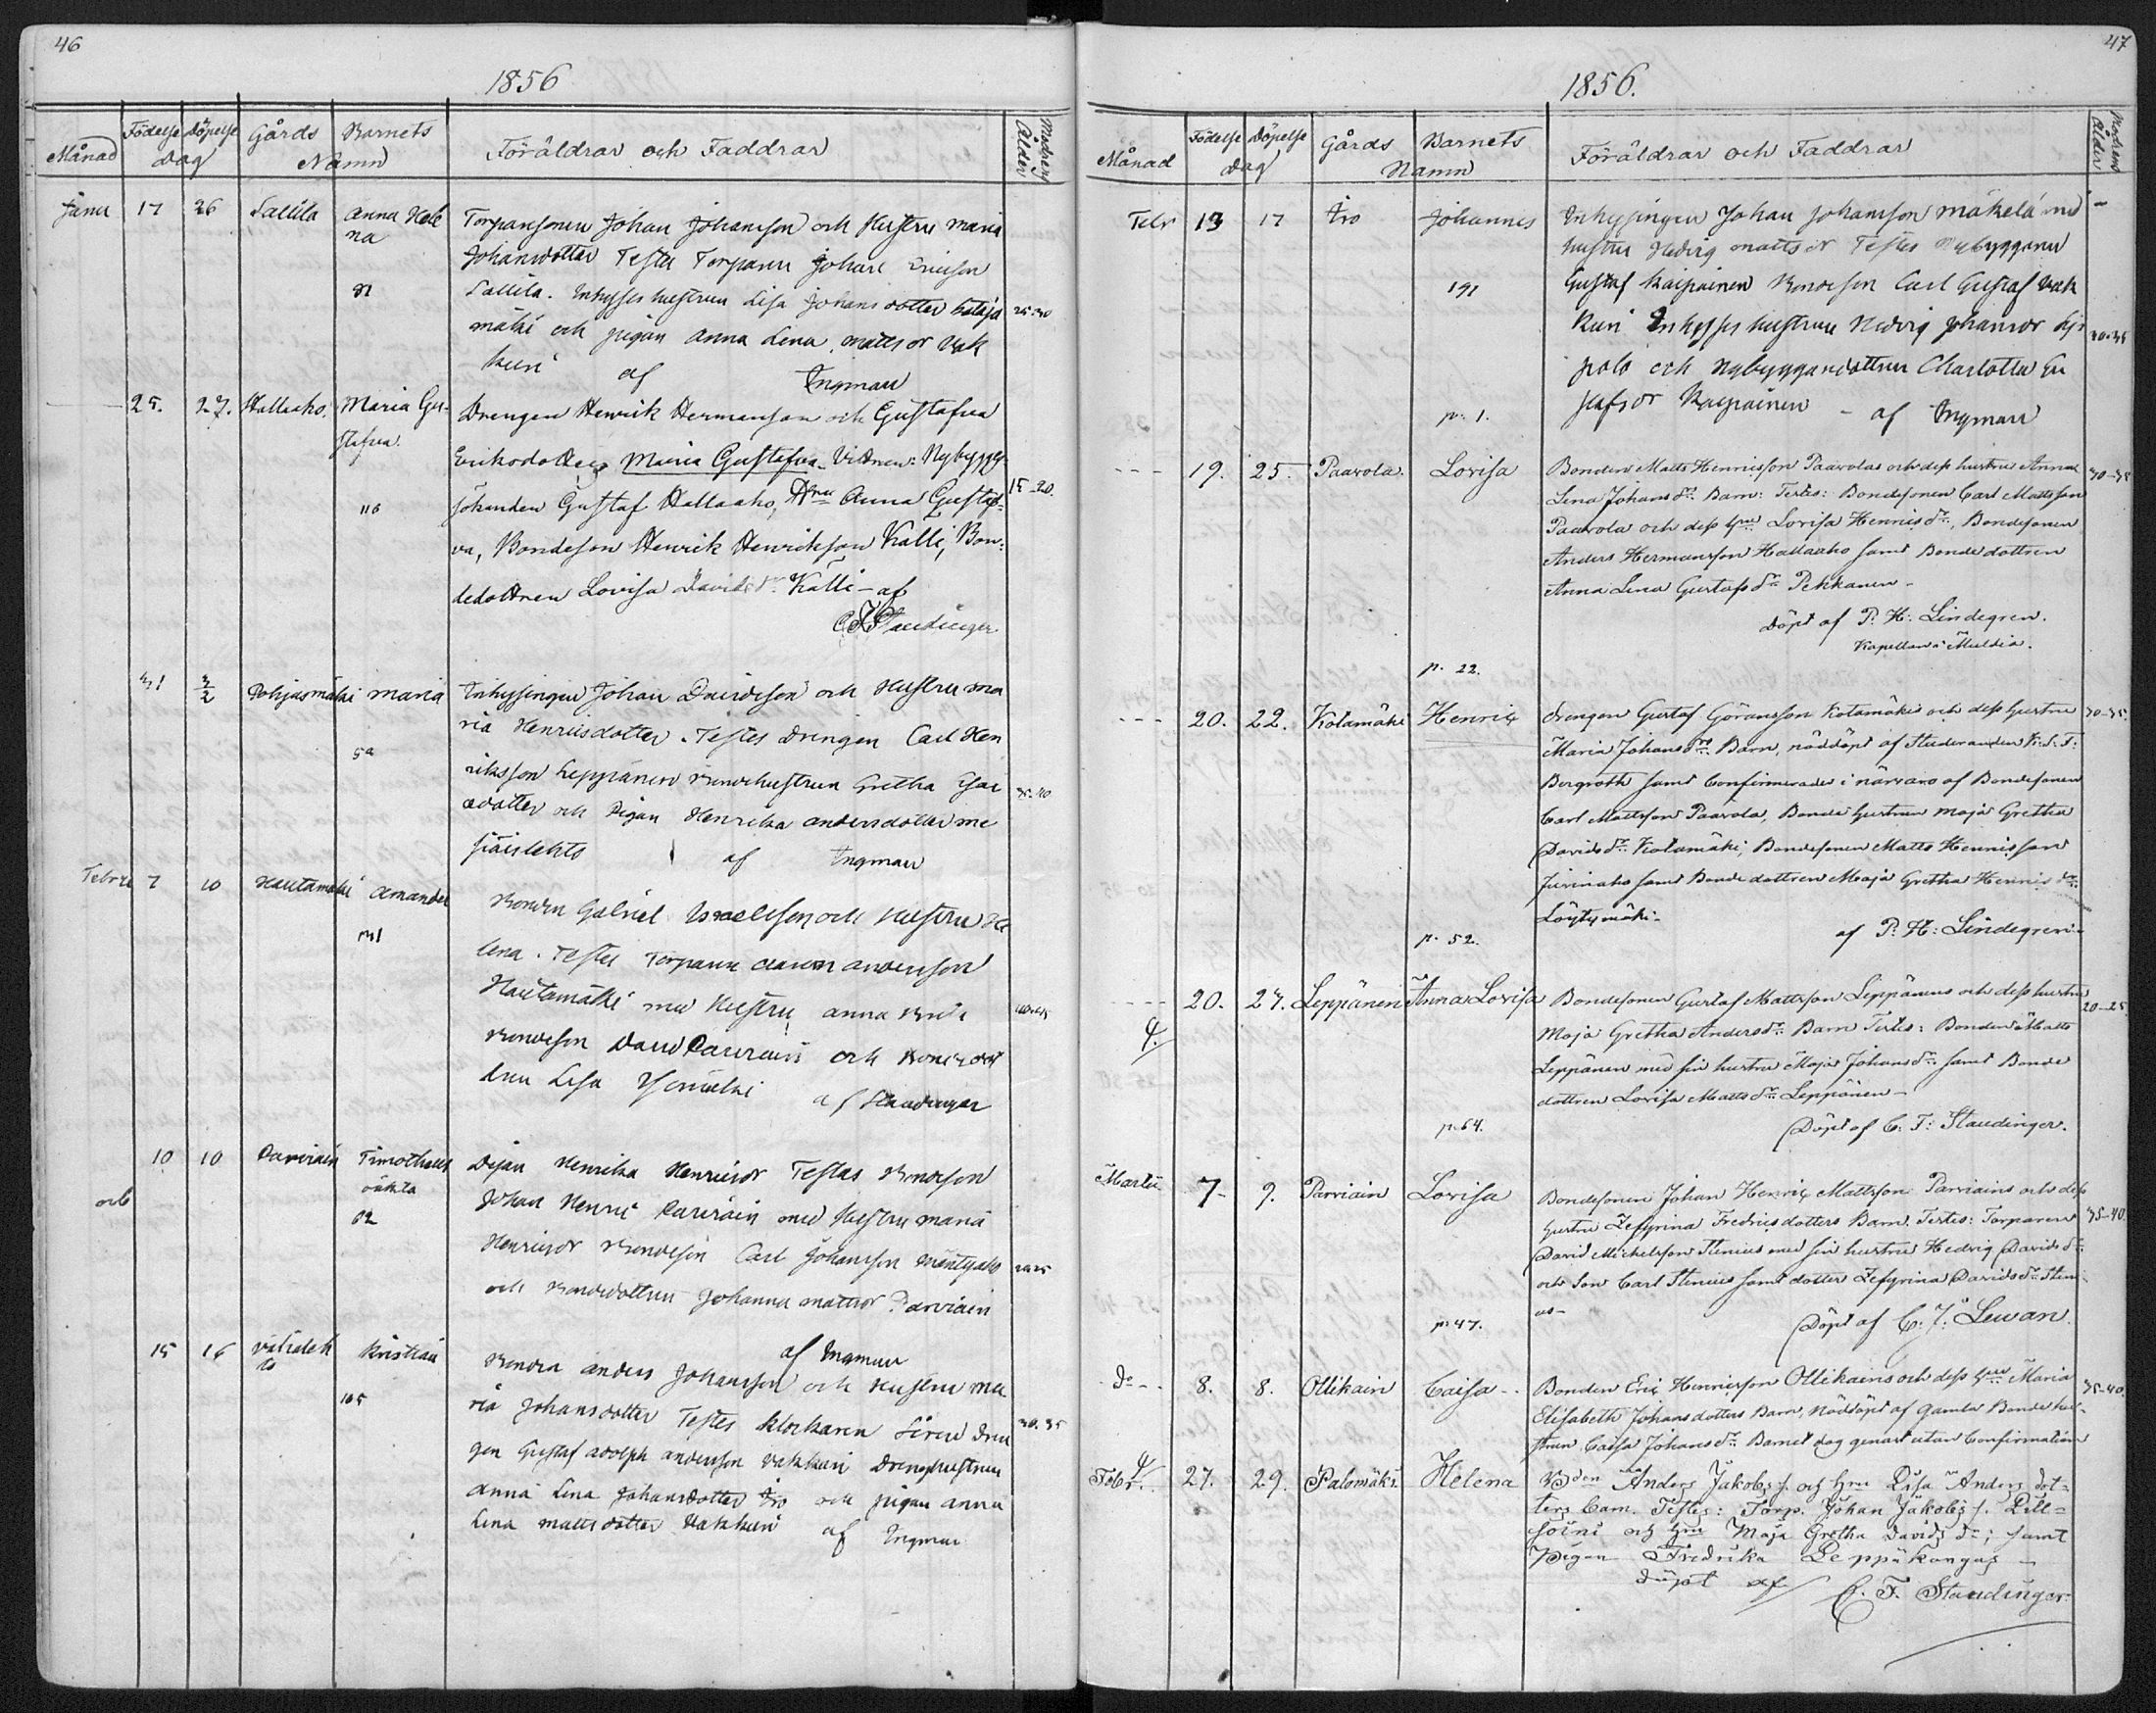 46
1856
Månad Födelse Döpelse Dag Gårds Barnets Namn Föräldrar och Faddrar Moderns Ålder
Janu 17 26 Lallila Anna Hele Torparsonen Johan Johansson och Hustru Maria
na Johansdotter Testes Torparen Johan Ericsson
Lallila. Inhysses hustrun Lisa Johansdotter
mäki och pigan Anna Lena Mattsdr Vak 25-30
kuri af Ingman
25. 27. Hallaaho. Maria Gu- Drengen Henrik Hermansson och Gustafva
stafva. Eriksdotters Maria Gustafva. Vittnen: Nybygg
Gustaf Hallaaho, Anna Gustaf- 15-20.
va, Bondeson Henrik Henriksson Kalli, Bon-
dedottren Lovisa Davidsdr Kalli - af
Staudinger
31 3/2 Pohjasmäki Maria Inhysingen Johan Davidsson och Hustru Ma
ria Henricsdotter. Testes Drengen Carl Hen
riksson Leppänen Bondehustrun Gretha Isac
dotter och Pigan Henrika Andersdotter 35-40
af Ingman
Febru 7 10 Hautamäki Amanda Bonden Gabriel Israelsson och Hustru He
lena. Testes Torparen Andersson
Hautamäki med Hustru Anna 40-45
Bondeson David Parviain och Bonde dot
tren Lisa af Staudinger
10 10 Parviain Timotheus Pigan Henrika Henricsdr Testes Bondeson
oäkta Johan Henric Parviain med Hustru Maria
Henricsdr Bondeson Carl Johansson Mäntyaho
och Bondedottren Johanna Mattsdr Parviain
af Ingman
15 16 Kristian Bonden Anders Johansson och Hustru Ma
105 ria Johansdotter Testes Klockaren Siren Dren 30-35
gen Gustaf Adolph Andersson Vakkuri Drenghustrun
Anna Lena Johansdotter Iso och pigan Anna
Lena Mattsdotter Vakkuri af Ingman
47
1856.
Månad Födelse Döpelse Dag Gårds Barnets Namn Föräldrar och Faddrar Moderns Ålder
Febr 13 17 Iso Johannes Inhysingen Johan Johansson Mäkelä med
hustru Hedvig Mattsdr Testes Nybyggaren
191 Gustaf Kaipainen Bondeson Carl Gustaf Vak
kuri Inhysses hustrun Hedvig Johansdr 30-35
polo och Nybyggaredottren Charlotta Gu
p. 1. stafsdr Kaipainen - af Ingman
- - - 19. 25. Paavola. Lovisa Bonden Matts Henricsson Paavolas och dess hustru Anna 30-35
Lena Johansdr. Barn: Testes: Bondesonen Carl Mattsson
Paavola och dess hru Lovisa Henricsdr, Bondesonen
Anders Hermansson Hallaaho samt Bondedottren
Anna Lena Gustafsdr Pekkanen -
Döpt af P. H: Lindegren.
Kapellan i Multia.
p. 22.
- - - 20. 22. Kotamäki Henric drengen Gustaf Göransson Kotamäkis och dess hustru 30-35.
Maria Johansdrs Barn, nöddöpt af Studeranden K: S: F:
Bergroth samt Confirmerades i närvaro af Bondesonen
Carl Mattsson Paavola, Bonde hustrun Maja Gretha
Davidsdr Kotamäki, Bondesonen Matts Henricsson
Jurinaho samt Bonde dottren Maja Gretha Henricsdr
Löytymäki -
p. 52. af P. H: Lindegren. -
- - - 20. 27. Leppänen Anna Lovisa Bondesonen Gustaf Mattsson Leppänens och dess hustru 20-25
Maja Gretha Andersdr Barn Testes: Bonden Matts
Leppänen med sin hustru Maja Johansdr samt Bonde
dottren Lovisa Mattsdr Leppänen -
p. 64. Döpt af C: F: Staudinger.
Martii 7- 9. Parviain Lovisa Bondesonen Johan Henric Mattsson Parviains och dess
hustru Zefyrina Fredricsdotters Barn. Testes: Torparen 35-40.
David Michelsson Stenius med sin hustru Hedvig Davidsdr
och Son Carl Stenius samt dotter Zefyrina Davidsdr Steni-
us -
p. 47. Döpt af C. J. Lewan.
do - - 8. 8. Ollikain Caisa - - Bonden Eric Henricsson Ollikains och dess hru Maria 35-40.
Elisabeth Johansdotters Barn, Nöddöpt af gamla Bonde hu-
strun Caisa Johansdr. Barnet dog genast utan Confirmation
Febr. 27. 29. Palomäki Helena Bden Anders Jakobs s. och hru Lisa Anders dot-
ters barn. Testes: Torp. Johan Jakobs s. Lill-
soini och hru Maja Gretha Davids dr; samt
Pigan Fredrika Leppäkangas -
döpt af C. F. Staudinger